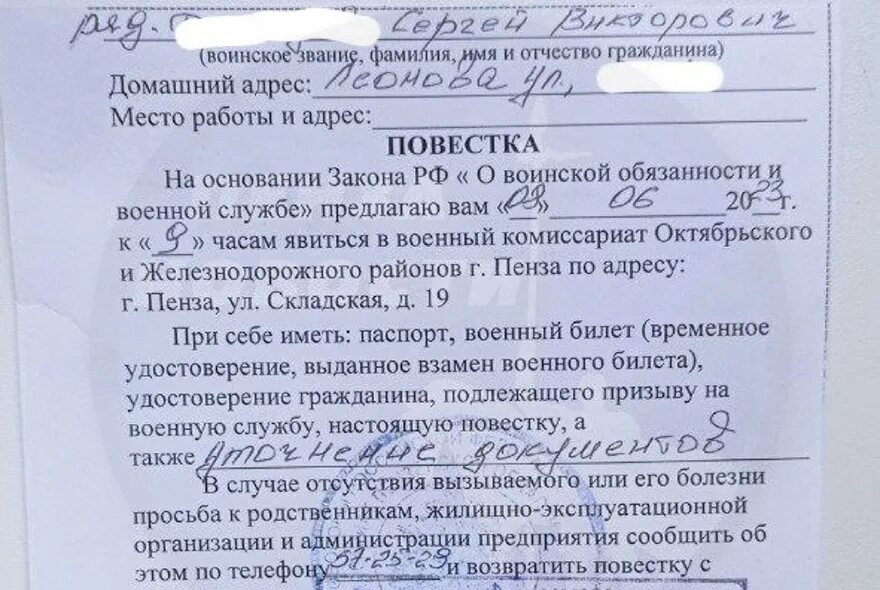 ряд. Сергей Викторович
(воинское звание, фамилия, имя и отчество гражданина)
Домашний адрес: Леонова ул.,
Место работы и адрес:
ПОВЕСТКА
На основании Закона РФ « О воинской обязанности и
военной службе» предлагаю вам «08» 06 2023 г.
к « 9 » часам явиться в военный комиссариат Октябрьского
и Железнодорожного районов г. Пенза по адресу:
г. Пенза, ул. Складская, д. 19
При себе иметь: паспорт, военный билет (временное
удостоверение, выданное взамен военного билета),
удостоверение гражданина, подлежащего призыву на
военную службу, настоящую повестку, а
также уточнение документов
В случае отсутствия вызываемого или его болезни
просьба к родственникам, жилищно-эксплуатационной
организации и администрации предприятия сообщить об
этом по телефону 57-25-29 и возвратить повестку с